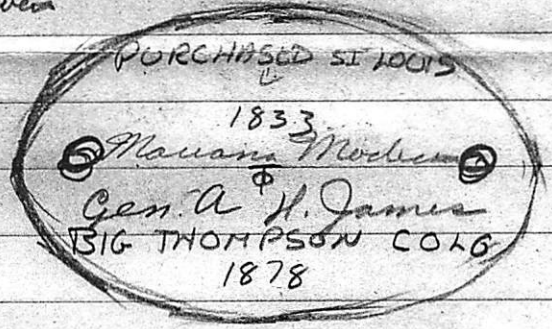 ven
PURCHASED ST LOUIS
1833
Mariano Modena
Φ
Gen. A H. James
BIG THOMPSON COLG
1878